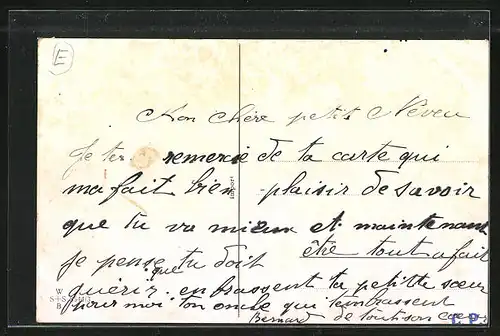 E
Mon chère petit Neveu
Je te remercie de ta carte qui
ma fait bien plaisir de savoir
que tu va mieux et maintenant
je pense que tu doit être tout a fait
guérir. enbrassent ta petitte sœur
pour moi ton oncle qui t'embrassent
Bernard de tout son cœur
W
C.P.